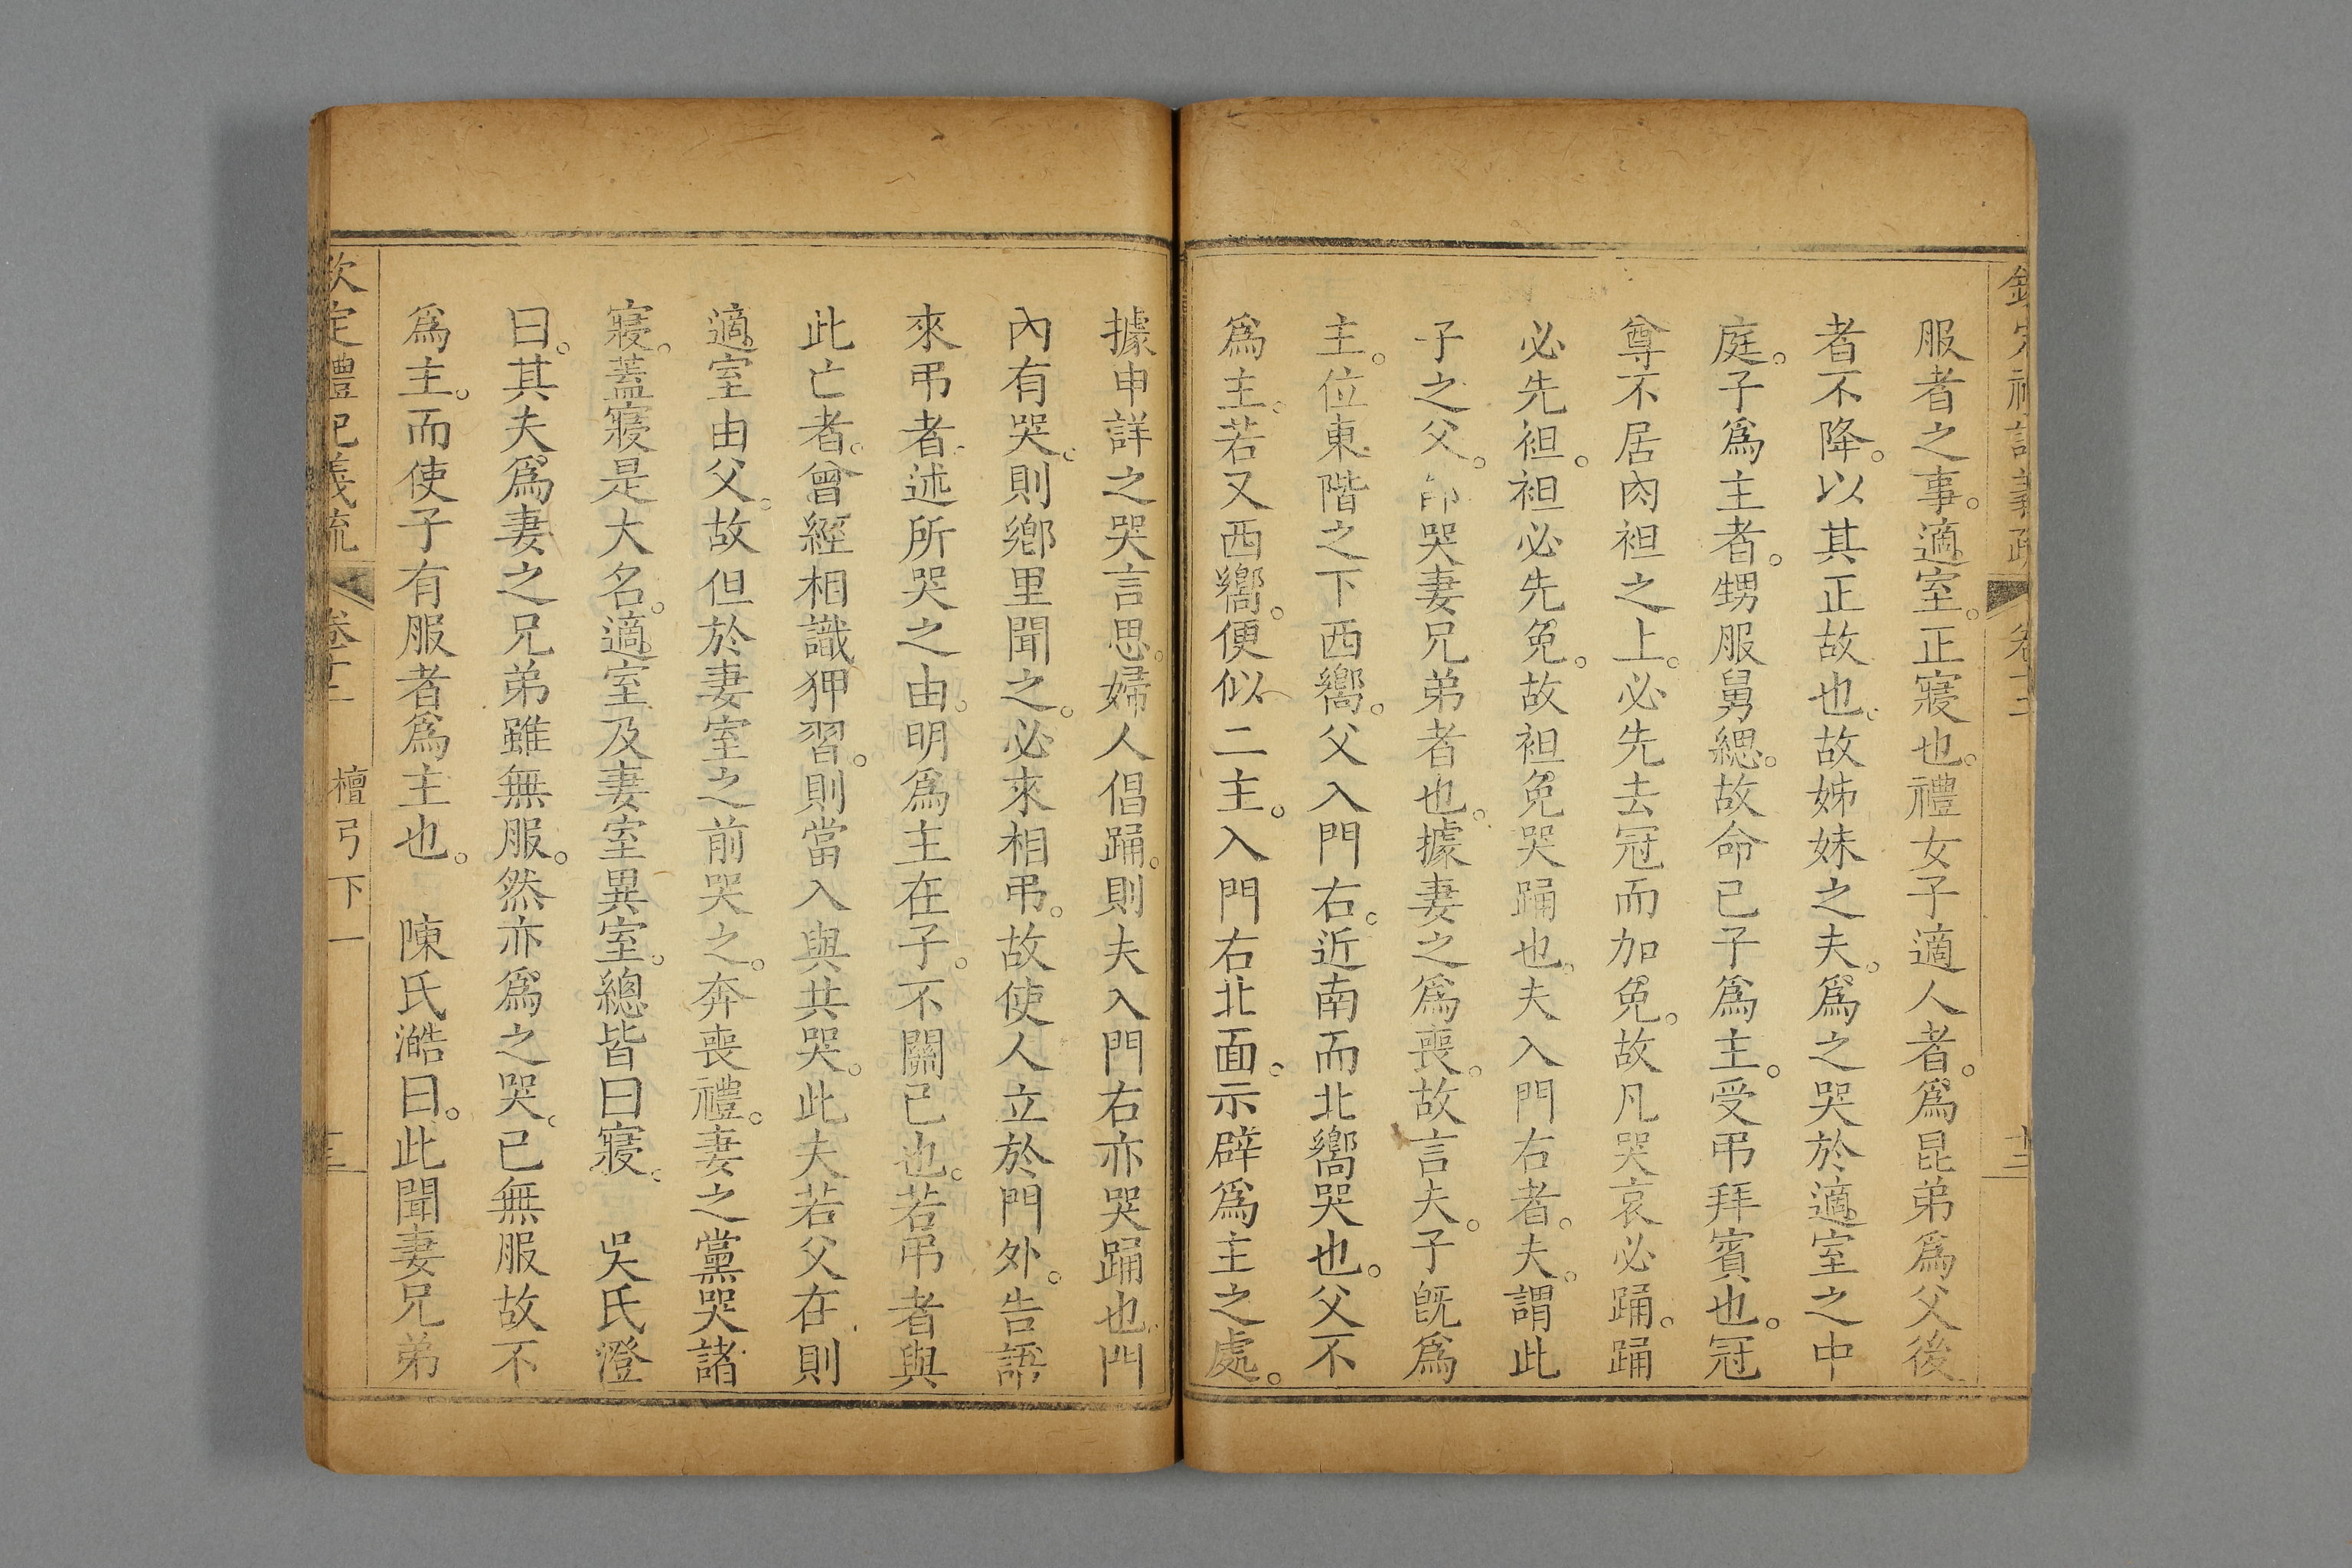 服者之事。適室。正寢也。禮女子適人者。爲昆弟爲父後
者不降。以其正故也。故姊妹之夫。爲之哭於適室之中
庭。子爲主者。甥服舅緦。故命已子爲主。受弔拜賓也。冠
尊不居肉袒之上。必先去冠而加免。故凡哭哀必踊。踊
必先袒。袒必先免。故袒免哭踊也。夫入門右者。夫。謂此
子之父。卽哭妻兄弟者也。據妻之爲喪。故言夫。子旣爲
主。位東階之下西嚮。父入門右。近南而北嚮哭也。父不
爲主。若又西嚮。便似二主。入門右北面。示辟爲主之處。
據申詳之哭言思。婦人倡踊。則夫入門右亦哭踊也。門
內有哭。則鄉里聞之。必來相弔。故使人立於門外。告語
來弔者。述所哭之由。明爲主在子。不關已也。若弔者與
此亡者。曾經相識狎習。則當入與共哭。此夫若父在則
適室由父。故但於妻室之前哭之。奔喪禮。妻之黨哭諸
寢。蓋寢是大名。適室及妻室異室。總皆曰寢。 吳氏澄
曰。其夫爲妻之兄弟雖無服。然亦爲之哭。已無服故不
爲主。而使子有服者爲主也。 陳氏澔曰。此聞妻兄弟
欽定禮記義疏 卷十二 檀弓下一 十三